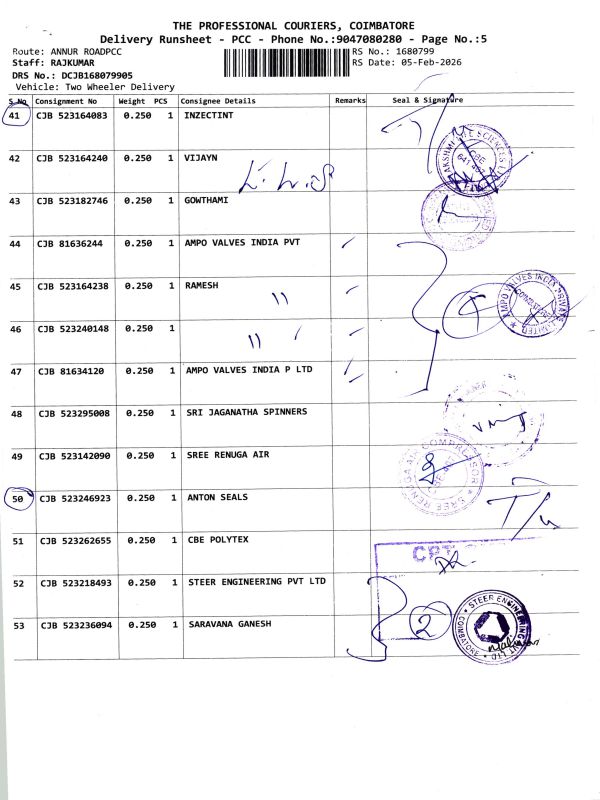 THE PROFESSIONAL COURIERS, COIMBATORE
Delivery Runsheet - PCC - Phone No.:9047080280 - Page No.:5
Route: ANNUR ROADPCC RS No.: 1680799
Staff: RAJKUMAR RS Date: 05-Feb-2026
DRS No.: DCJB168079905
Vehicle: Two Wheeler Delivery
S.No Consignment No Weight PCS Consignee Details Remarks Seal & Signature
41 CJB 523164083 0.250 1 INZECTINT
42 CJB 523164240 0.250 1 VIJAYN
43 CJB 523182746 0.250 1 GOWTHAMI
44 CJB 81636244 0.250 1 AMPO VALVES INDIA PVT
45 CJB 523164238 0.250 1 RAMESH
11
4
AMPO VALVES INDIA PRIVATE LIMITED
COIMBATORE
46 CJB 523240148 0.250 1
11
47 CJB 81634120 0.250 1 AMPO VALVES INDIA P LTD
48 CJB 523295008 0.250 1 SRI JAGANATHA SPINNERS
49 CJB 523142090 0.250 1 SREE RENUGA AIR
SREE RENUGA AIR COMPRESSOR
50 CJB 523246923 0.250 1 ANTON SEALS
51 CJB 523262655 0.250 1 CBE POLYTEX
52 CJB 523218493 0.250 1 STEER ENGINEERING PVT LTD
2
STEER ENGINEERING PVT LTD
COIMBATORE
53 CJB 523236094 0.250 1 SARAVANA GANESH